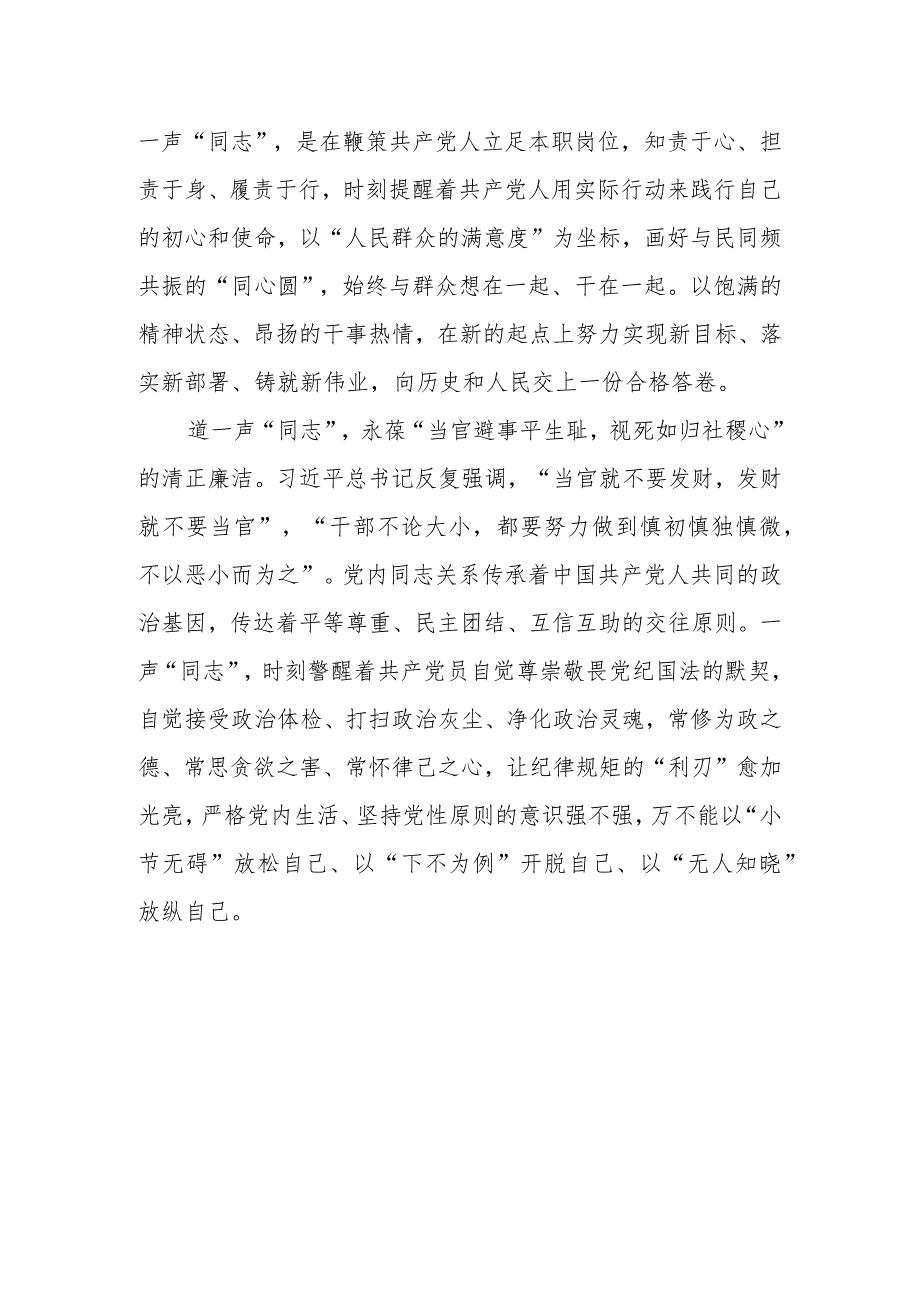 一声“同志”，是在鞭策共产党人立足本职岗位，知责于心、担
责于身、履责于行，时刻提醒着共产党人用实际行动来践行自己
的初心和使命，以“人民群众的满意度”为坐标，画好与民同频
共振的“同心圆”，始终与群众想在一起、干在一起。以饱满的
精神状态、昂扬的干事热情，在新的起点上努力实现新目标、落
实新部署、铸就新伟业，向历史和人民交上一份合格答卷。
道一声“同志”，永葆“当官避事平生耻，视死如归社稷心”
的清正廉洁。习近平总书记反复强调，“当官就不要发财，发财
就不要当官”，“干部不论大小，都要努力做到慎初慎独慎微，
不以恶小而为之”。党内同志关系传承着中国共产党人共同的政
治基因，传达着平等尊重、民主团结、互信互助的交往原则。一
声“同志”，时刻警醒着共产党员自觉尊崇敬畏党纪国法的默契，
自觉接受政治体检、打扫政治灰尘、净化政治灵魂，常修为政之
德、常思贪欲之害、常怀律己之心，让纪律规矩的“利刃”愈加
光亮，严格党内生活、坚持党性原则的意识强不强，万不能以“小
节无碍”放松自己、以“下不为例”开脱自己、以“无人知晓”
放纵自己。